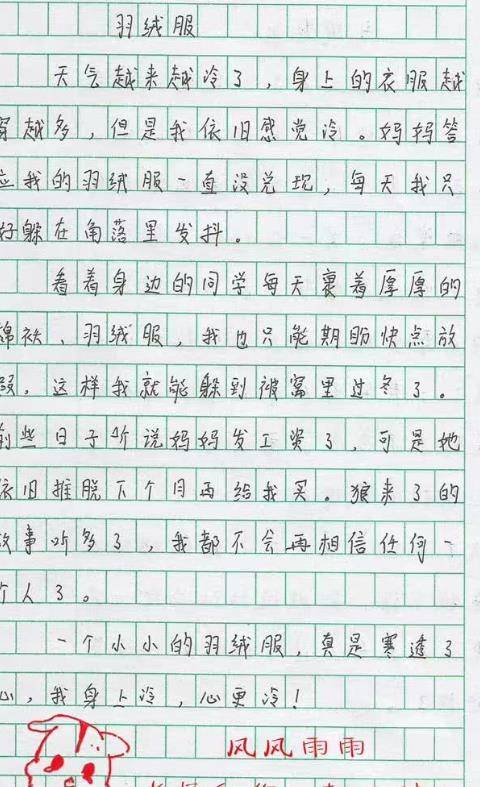 羽绒服
天气越来越冷了，身上的衣服越
穿越多，但是我依旧感觉冷。妈妈答
应我的羽绒服一直没兑现，每天我只
好躲在角落里发抖。
看着身边的同学每天裹着厚厚的
棉袄、羽绒服，我也只能期盼快点放
假，这样我就能躲到被窝里过冬了。
前些日子听说妈妈发工资了，可是她
依旧推脱下个月再给我买。狼来了的
故事听多了，我都不会再相信任何一
个人了。
一个小小的羽绒服，真是寒透了
心，我身上冷，心更冷！
风风雨雨